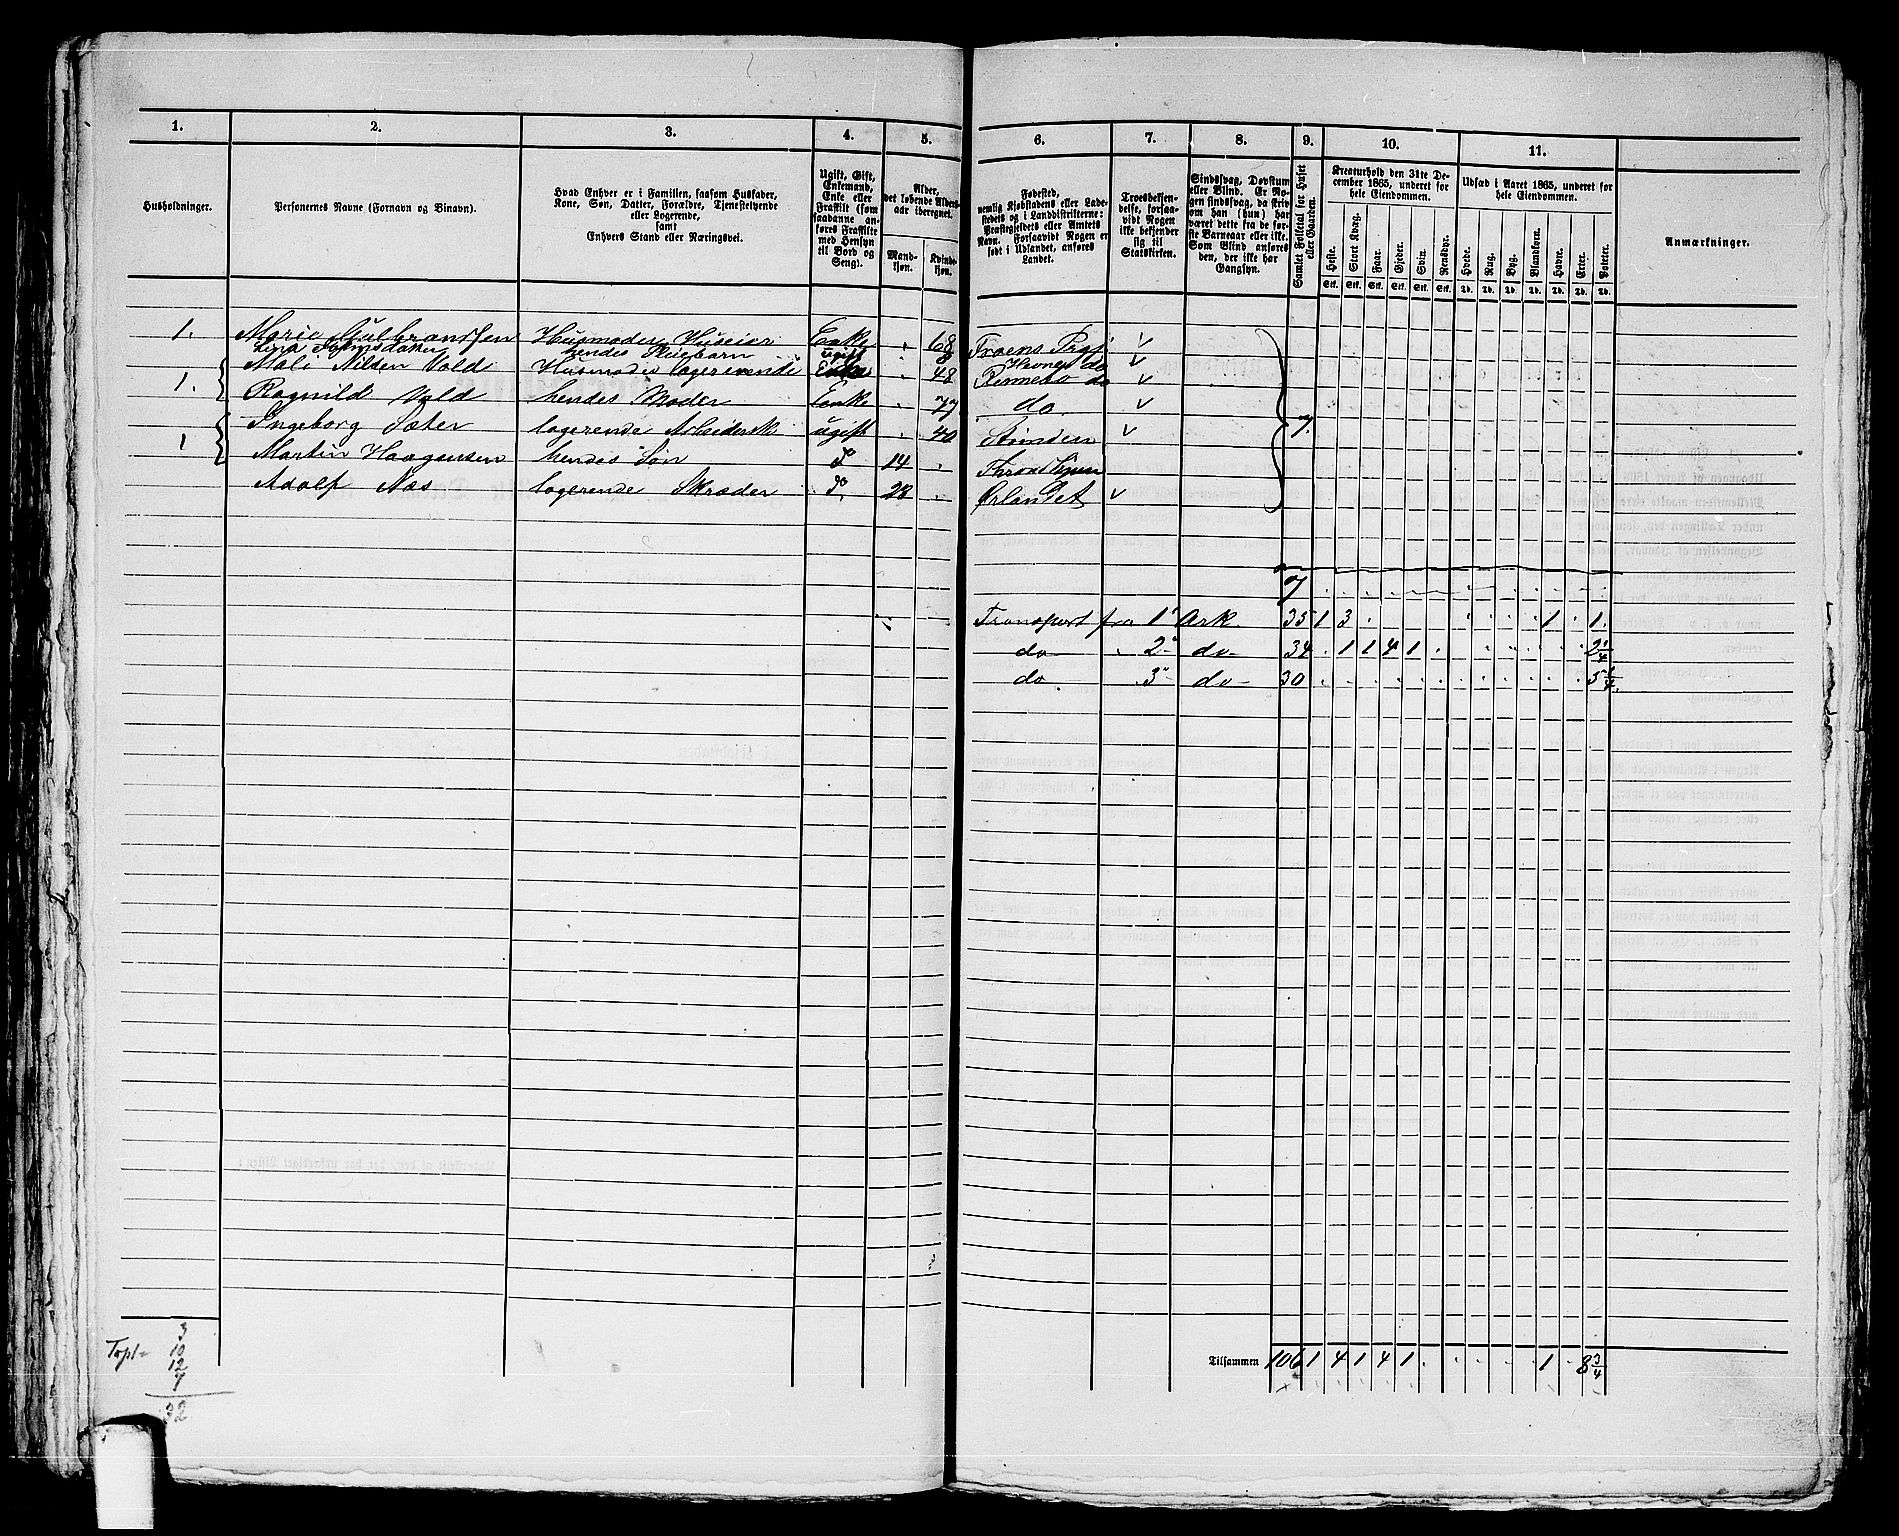 1. 2. 3. 4. 5. 6. 7. 8. 9. 10. 11.
Husholdninger.
Personernes Navne (Fornavn og Binavn).
Hvad Enhver er i Familien, saasom Husfader, Kone, Søn, Datter, Forældre, Tjenestetyende eller Logerende, samt Enhvers Stand eller Næringsvei.
Ugift, Gift, Enkemand, Enke eller Fraskilt (som saadanne anføres Fraskilte med Hensyn til Bord og Seng).
Alder, det løbende Aldersaar iberegnet.
Mandkjøn. Kvindekjøn.
Fødested, nemlig Kjøbstadens eller Ladestedets og i Landdistrikterne: Præstegjeldets eller Amtets Navn. Forsaavidt Nogen er født i Udlandet, anføres Landet.
Troesbekjendelse, forsaavidt Nogen ikke bekjender sig til Statskirken.
Sindssvag, Døvstum eller Blind. Er Nogen sindssvag, da skriv om han (hun) har været dette fra de første Barneaar eller ikke. Som Blind anføres den, der ikke har Gangsyn.
Samlet Folketal for Huset eller Gaarden.
Kreaturhold den 31te December 1865, underet for hele Eiendommen.
Heste. Stort Kvæg. Faar. Gjeder. Svin. Rensdyr.
Stk. Stk. Stk. Stk. Stk. Stk.
Udsæd i Aaret 1865, underet for hele Eiendommen.
Hvede. Rug. Byg. Blandkorn. Havre. Erter. Poteter.
Td. Td. Td. Td. Td. Td. Td.
Anmærkninger.
1. Marie Gulbrandsen Husmoder Huseier Enke 68 Froens
hendes Pleiebarn ugift 8
Mali Nilsen Vold Husmoder logerende Enke 48 Rennebo do
1. Ragnild Vold hendes Moder Enke 77 do
Ingeborg Sæter logerende ugift 40 Strinden 7.
1 Martin Haagensen hendes Søn do 14 Throndhjem
Adolf Næs logerende Skræder do 28 Ørlandet
7
Transport fra 1 Ark 35 1 3 1 1
do 2 do 34 1 1 4 1
do 3 do 30
3
Tvpl 10
12
7
32
Tilsammen 106 1 4 1 4 1 1 8 3/4